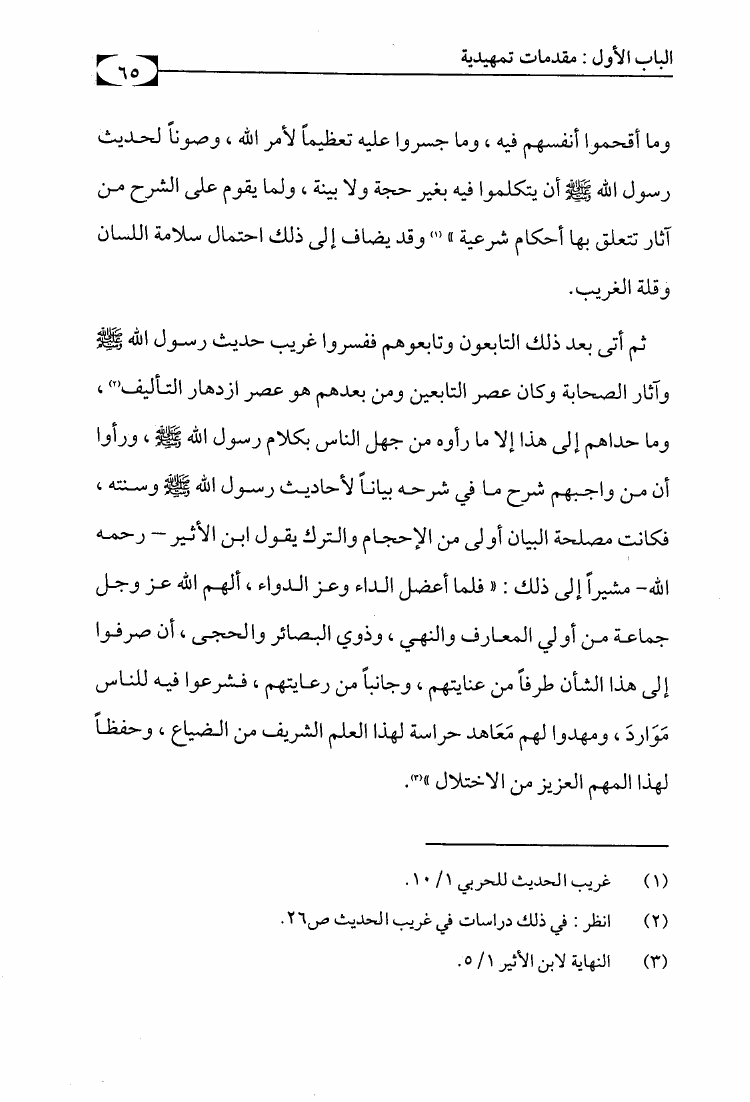 الباب الأول : مقدمات تمهيدية
٦٥
وما أقحموا أنفسهم فيه ، وما جسروا عليه تعظيماً لأمر الله ، وصوناً لحديث
رسول الله ﷺ أن يتكلموا فيه بغير حجة ولا بينة ، ولما يقوم على الشرح من
آثار تتعلق بها أحكام شرعية » (١) وقد يضاف إلى ذلك احتمال سلامة اللسان
وقلة الغريب.
ثم أتى بعد ذلك التابعون وتابعوهم ففسروا غريب حديث رسول الله ﷺ
وآثار الصحابة وكان عصر التابعين ومن بعدهم هو عصر ازدهار التأليف(٢) ،
وما حداهم إلى هذا إلا ما رأوه من جهل الناس بكلام رسول الله ﷺ ، ورأوا
أن من واجبهم شرح ما في شرحه بياناً لأحاديث رسول الله ﷺ وسنته ،
فكانت مصلحة البيان أولى من الإحجام والترك يقول ابن الأثير – رحمه
الله– مشيراً إلى ذلك : « فلما أعضل الداء وعز الدواء ، ألهم الله عز وجل
جماعة من أولي المعارف والنهي ، وذوي البصائر والحجى ، أن صرفوا
إلى هذا الشأن طرفاً من عنايتهم ، وجانباً من رعايتهم ، فشرعوا فيه للناس
مَوَاردَ ، ومهدوا لهم مَعَاهد حراسة لهذا العلم الشريف من الضياع ، وحفظاً
لهذا المهم العزيز من الاختلال »(٣).
(١) غريب الحديث للحربي ١/ ١٠.
(٢) انظر : في ذلك دراسات في غريب الحديث ص٢٦.
(٣) النهاية لابن الأثير ١/ ٥.